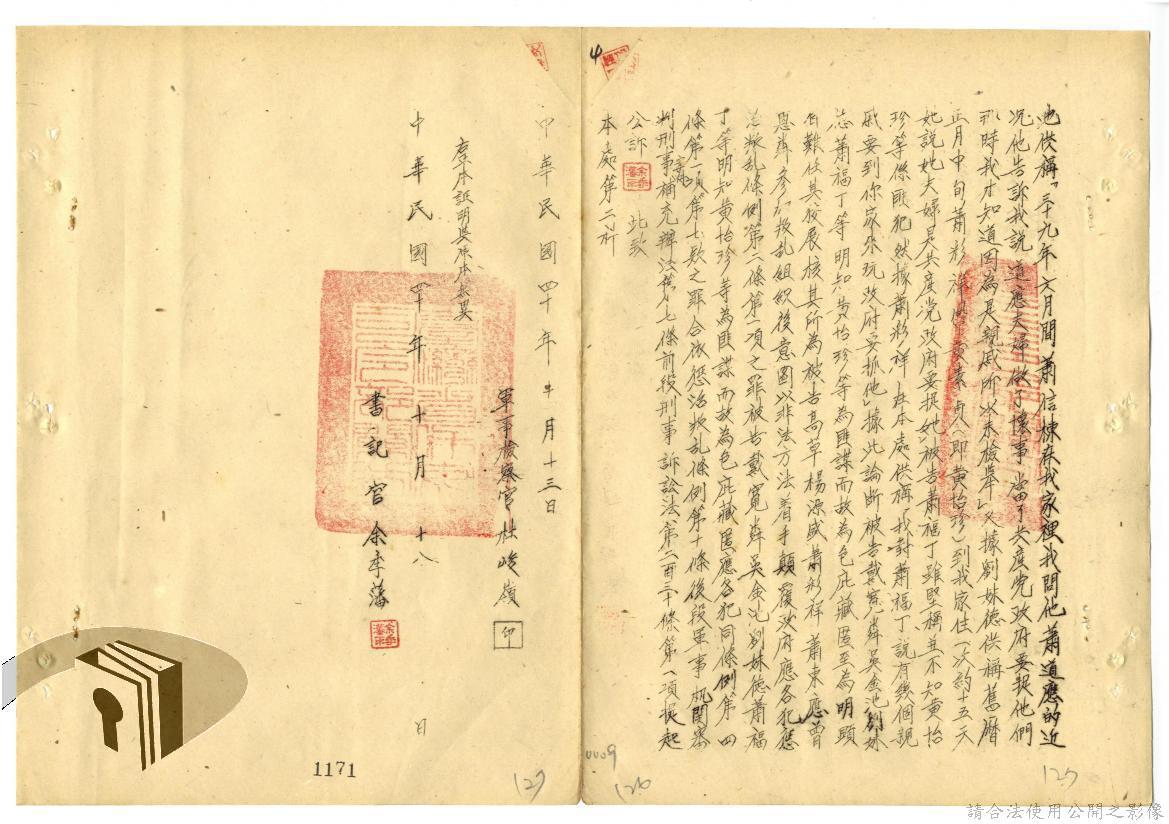 他供稱「三十九年六月間蕭信棟在我家裡我問他蕭道應的近
況他告訴我說道應夫婦做了壞事當了共產党政府要捉他們
那時我才知道因為是親戚所以未檢舉」又據劉妹德供稱舊曆
正月中旬蕭彩祥帶 素貞（即黃怡珍）到我家住一次約十五天
她說她夫婦是共產党政府要捉她」被告蕭福丁雖堅稱並不知黃怡
珍等係匪犯然據蕭彩祥在本處供稱「我對蕭福丁說有幾個親
戚要到你家來玩政府要抓他」據此論斷被告戴寬 吳金池劉妹
德蕭福丁等明知黃怡珍等為匪諜而故為包庇藏匿至為明顯
自難任其狡展核其所為被告高草楊源盛蕭彩祥蕭東應曾
恩 參加叛乱組織後意圖以非法方法着手顛覆政府應各犯懲
治叛乱條例第二條第一項之罪被告戴寬 吳金池劉妹德蕭福
丁等明知黃怡珍等為匪諜而故為包庇藏匿應各犯同條例第四
條第一項第七款之罪合依懲治叛乱條例第十條後段軍事机関審
判刑事補充辦法第七條前段刑事訴訟法第二百三十條第一項提起
公訴 此致
本處第二科
中華民國四十年十月十三日
軍事檢察官杜峻嶺 印
右本証明與原本無異
中華民國四十年十月十八日
書記官余李藩
1171
4
0009
127
126
125
請合法使用公開之影像